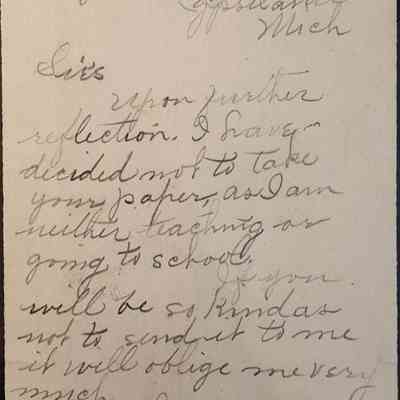 Ypsilanti
Mich
Sirs
Upon further
reflection. I have
decided not to take
your paper, as I am
neither teaching or
going to school.
If you
will be so kind as
not to send it to me
it will oblige me very
much